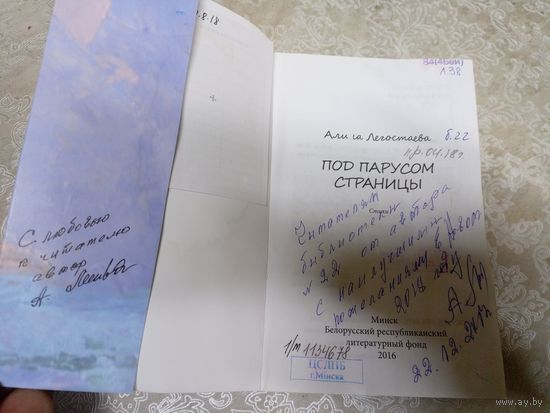 С любовью
к читателю
автор
.8.18
84(4Беи)
Л38
Алиса Легостаева
б.22
пр. 04.18г.
ПОД ПАРУСОМ
СТРАНИЦЫ
Стихи
Читателям
библиотеки
№ 22 от автора
с наилучшими
пожеланиями в Новом
2018 году
22.12.2017г.
Минск
Белорусский республиканский
литературный фонд
2016
1134678
ЦСПБ
г.Минска
www.ay.by